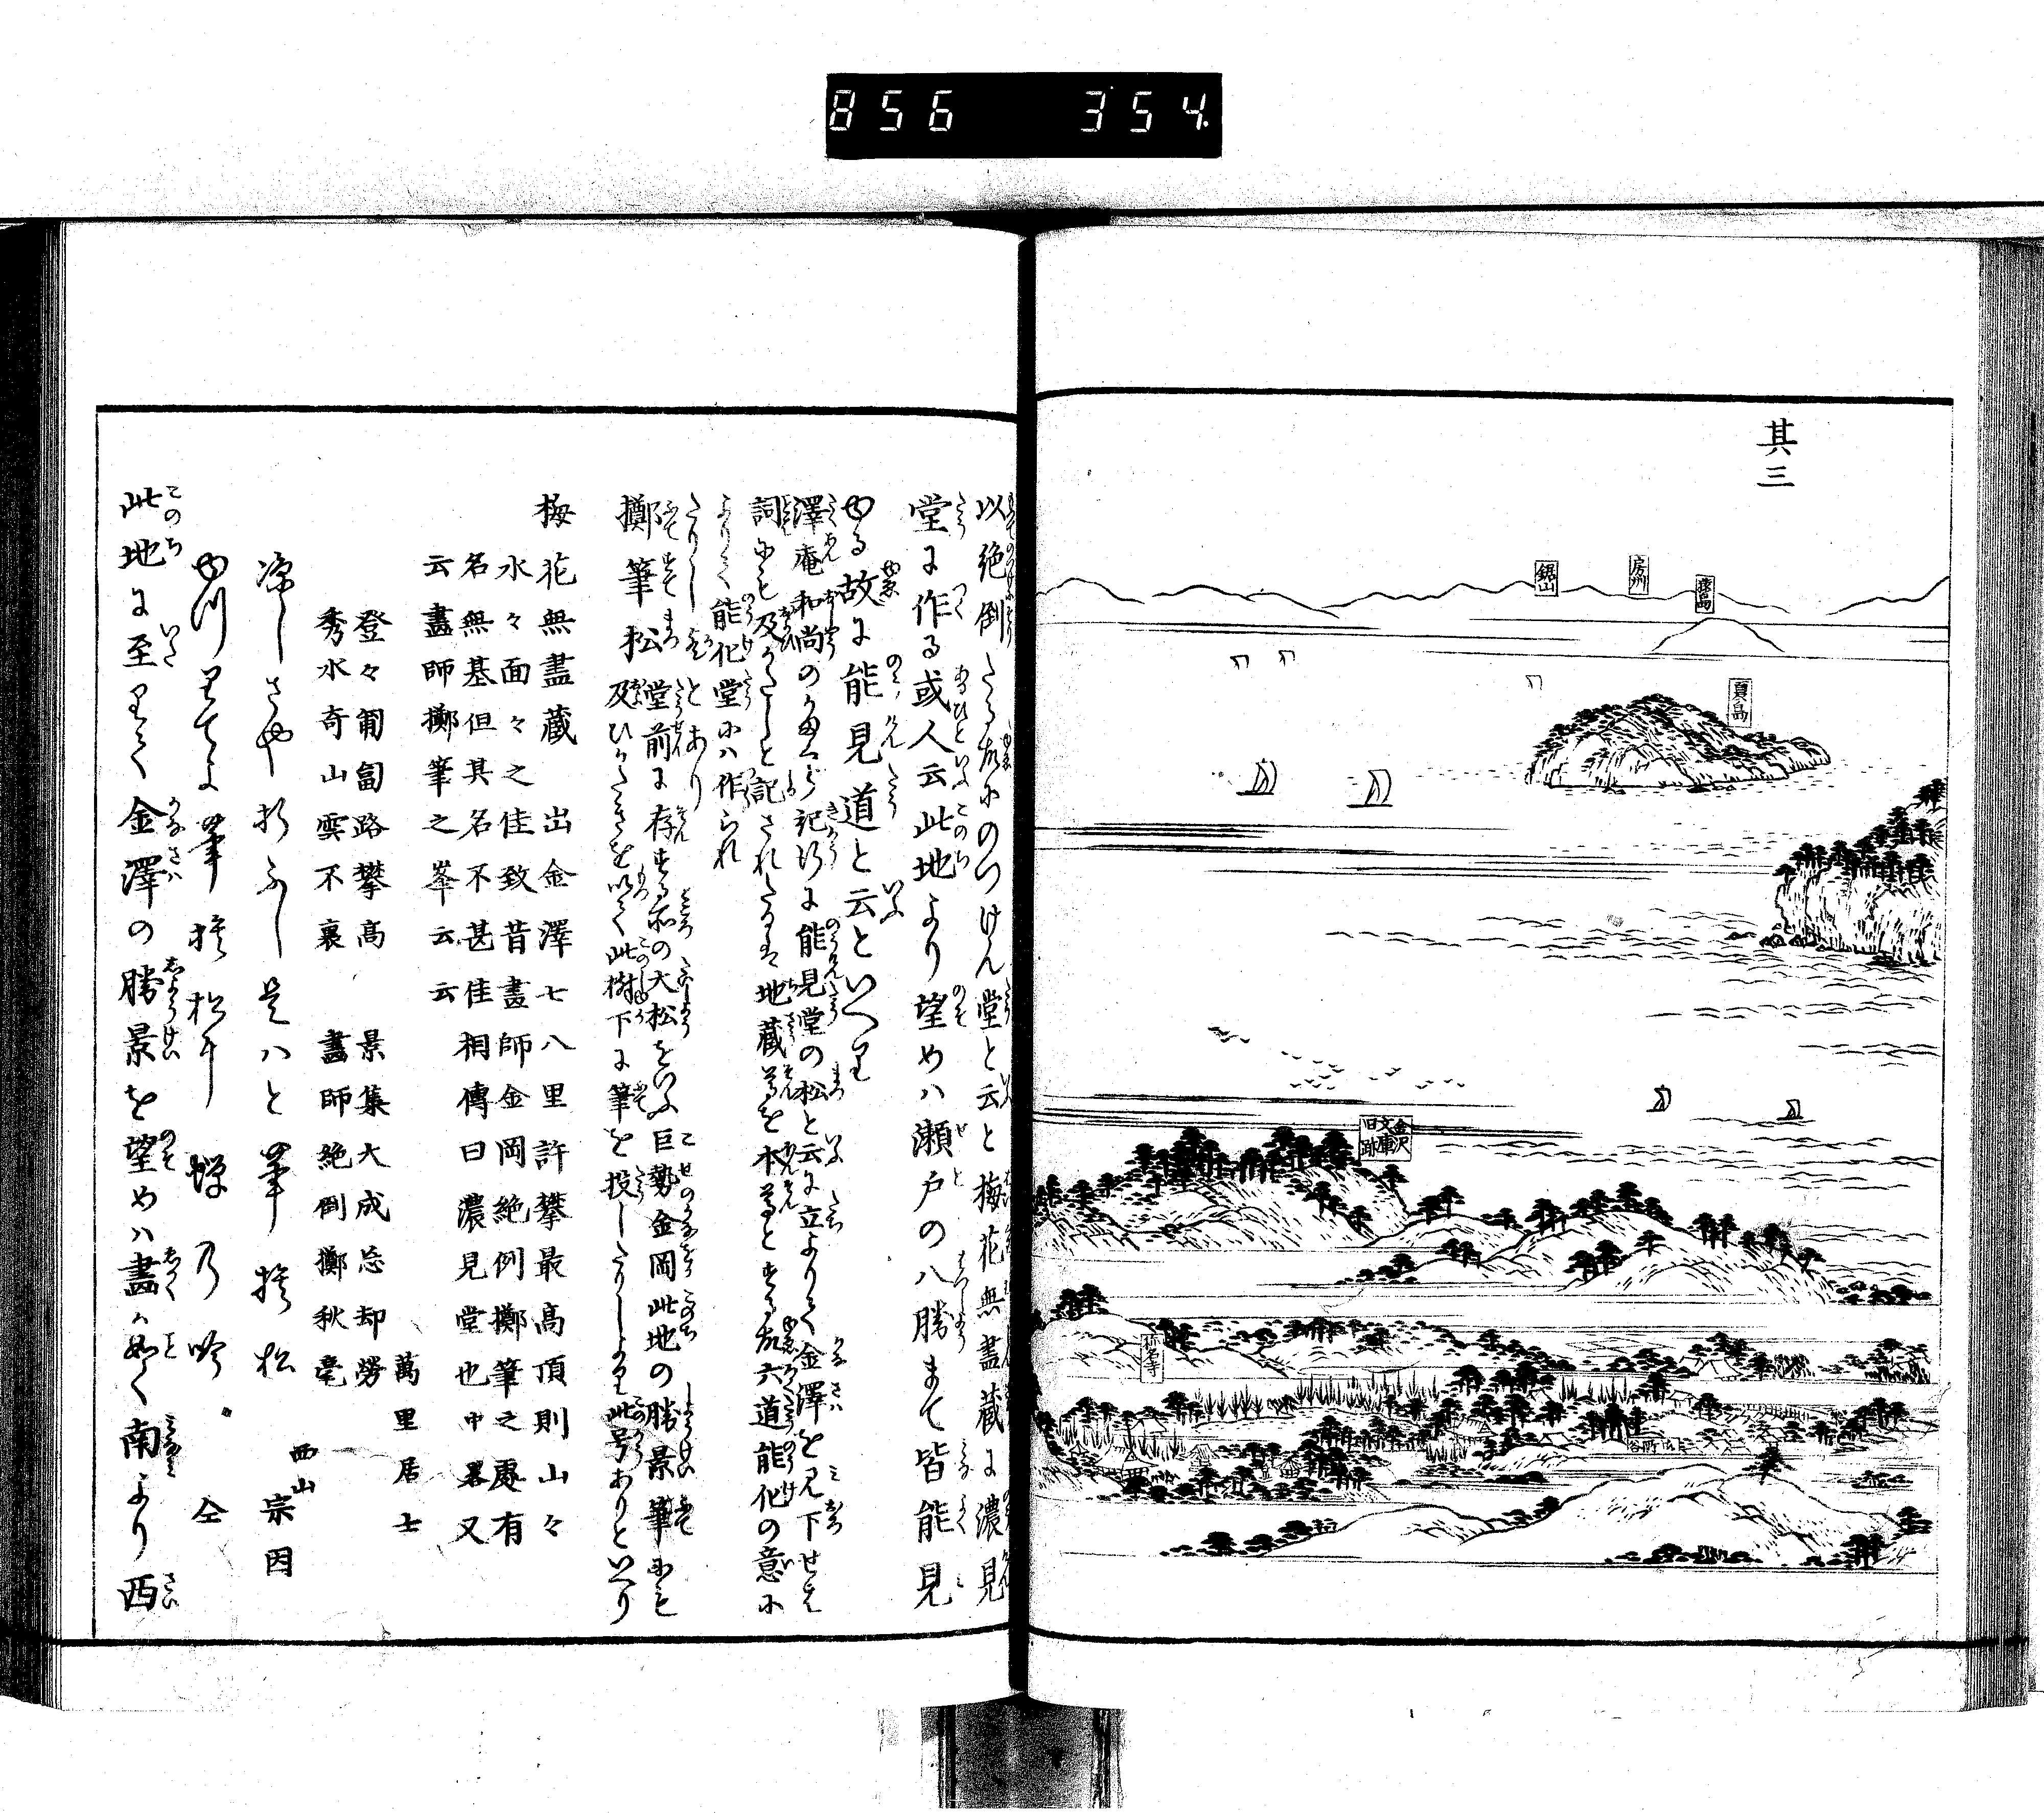 856 354
其三
鋸山
房州
猿島
夏島
金沢
文庫
旧跡
称名寺
以絶倒たる故にのつけん堂と云と梅花無盡蔵に濃見
堂に作る或人云此地より望めハ瀬戸の八勝まて皆能見
ゆる故に能見道と云といへり
澤庵和尚の
記行に能見堂の松と云に立よりて金澤を見下せは
詞にも及かたしと記されたるは地蔵尊を本尊とする故六道能化の意に
よりて能化堂にハ作られ
たりしとあり
擲筆松
堂前に存する所の大松をいふ巨勢金岡此地の勝景筆にも
及ひかたきを以て此樹下に筆を投したりしより此号ありといへり
梅花無盡蔵 出金澤七八里許攀最高頂則山々
水々面々之佳致昔畫師金岡絶倒擲筆之處有
名無基但其名不甚佳相傳曰濃見堂也中畧又
云畫師擲筆之峯云云
登々匍匐路攀高 景集大成忘却勞
秀水奇山雲不裏 畫師絶倒擲秋毫
萬里居士
涼しさや折ふし是ハと筆捨松
西山宗因
筆捨松
仝
此地に至りて金澤の勝景を望めハ畫か如く南より西